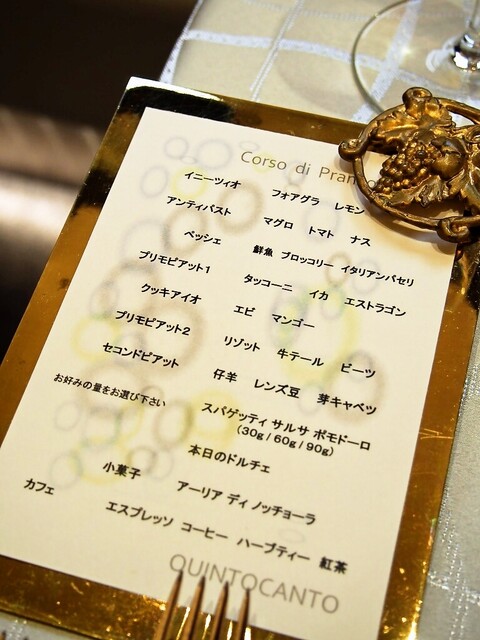 Corso di Pran
イニーツィオ フォアグラ レモン
アンティパスト マグロ トマト ナス
ペッシェ 鮮魚 ブロッコリー イタリアンパセリ
プリモピアット1 タッコーニ イカ エストラゴン
クッキアイオ エビ マンゴー
プリモピアット2 リゾット 牛テール ビーツ
セコンドピアット 仔羊 レンズ豆 芽キャベツ
お好みの量をお選び下さい スパゲッティ サルサ ポモドーロ
(30g / 60g / 90g)
本日のドルチェ
小菓子 アーリア ディ ノッチョーラ
カフェ エスプレッソ コーヒー ハーブティー 紅茶
QUINTOCANTO